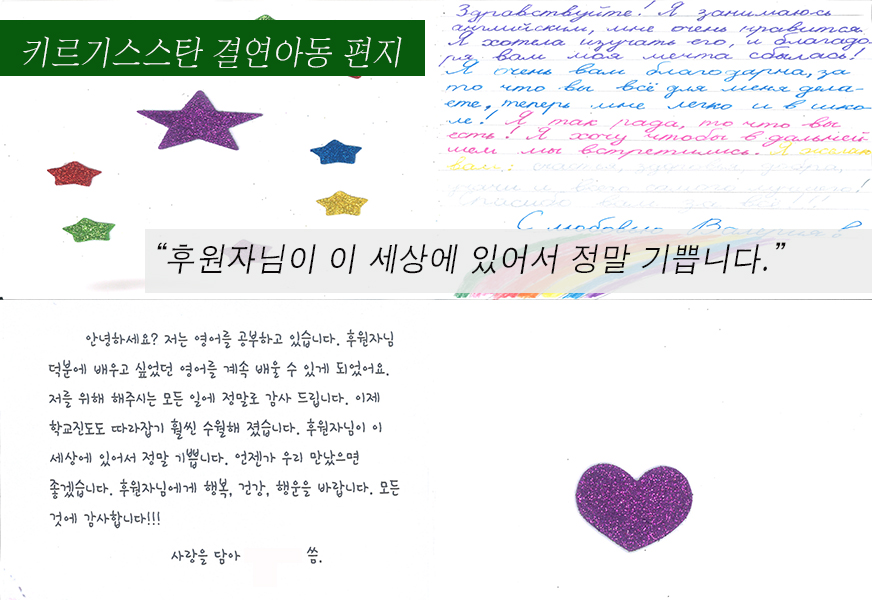 키르기스스탄 결연아동 편지
Здравствуйте! Я занимаюсь
английским, мне очень нравится.
Я хотела изучать его, и благода-
ря вам моя мечта сбылась!
Я очень вам благодарна, за
то что вы всё для меня дела-
ете, теперь мне легко и в шко-
ле! Я так рада, то что вы
есть! Я хочу чтобы в дальней-
шем мы встретились. Я желаю
вам: счастья, здоровья, добра,
удачи и всего самого лучшего!
Спасибо вам за всё!!!
С любовью Валерия
“후원자님이 이 세상에 있어서 정말 기쁩니다.”
안녕하세요? 저는 영어를 공부하고 있습니다. 후원자님
덕분에 배우고 싶었던 영어를 계속 배울 수 있게 되었어요.
저를 위해 해주시는 모든 일에 정말로 감사 드립니다. 이제
학교진도도 따라잡기 훨씬 수월해 졌습니다. 후원자님이 이
세상에 있어서 정말 기쁩니다. 언젠가 우리 만났으면
좋겠습니다. 후원자님에게 행복, 건강, 행운을 바랍니다. 모든
것에 감사합니다!!!
사랑을 담아 씀.